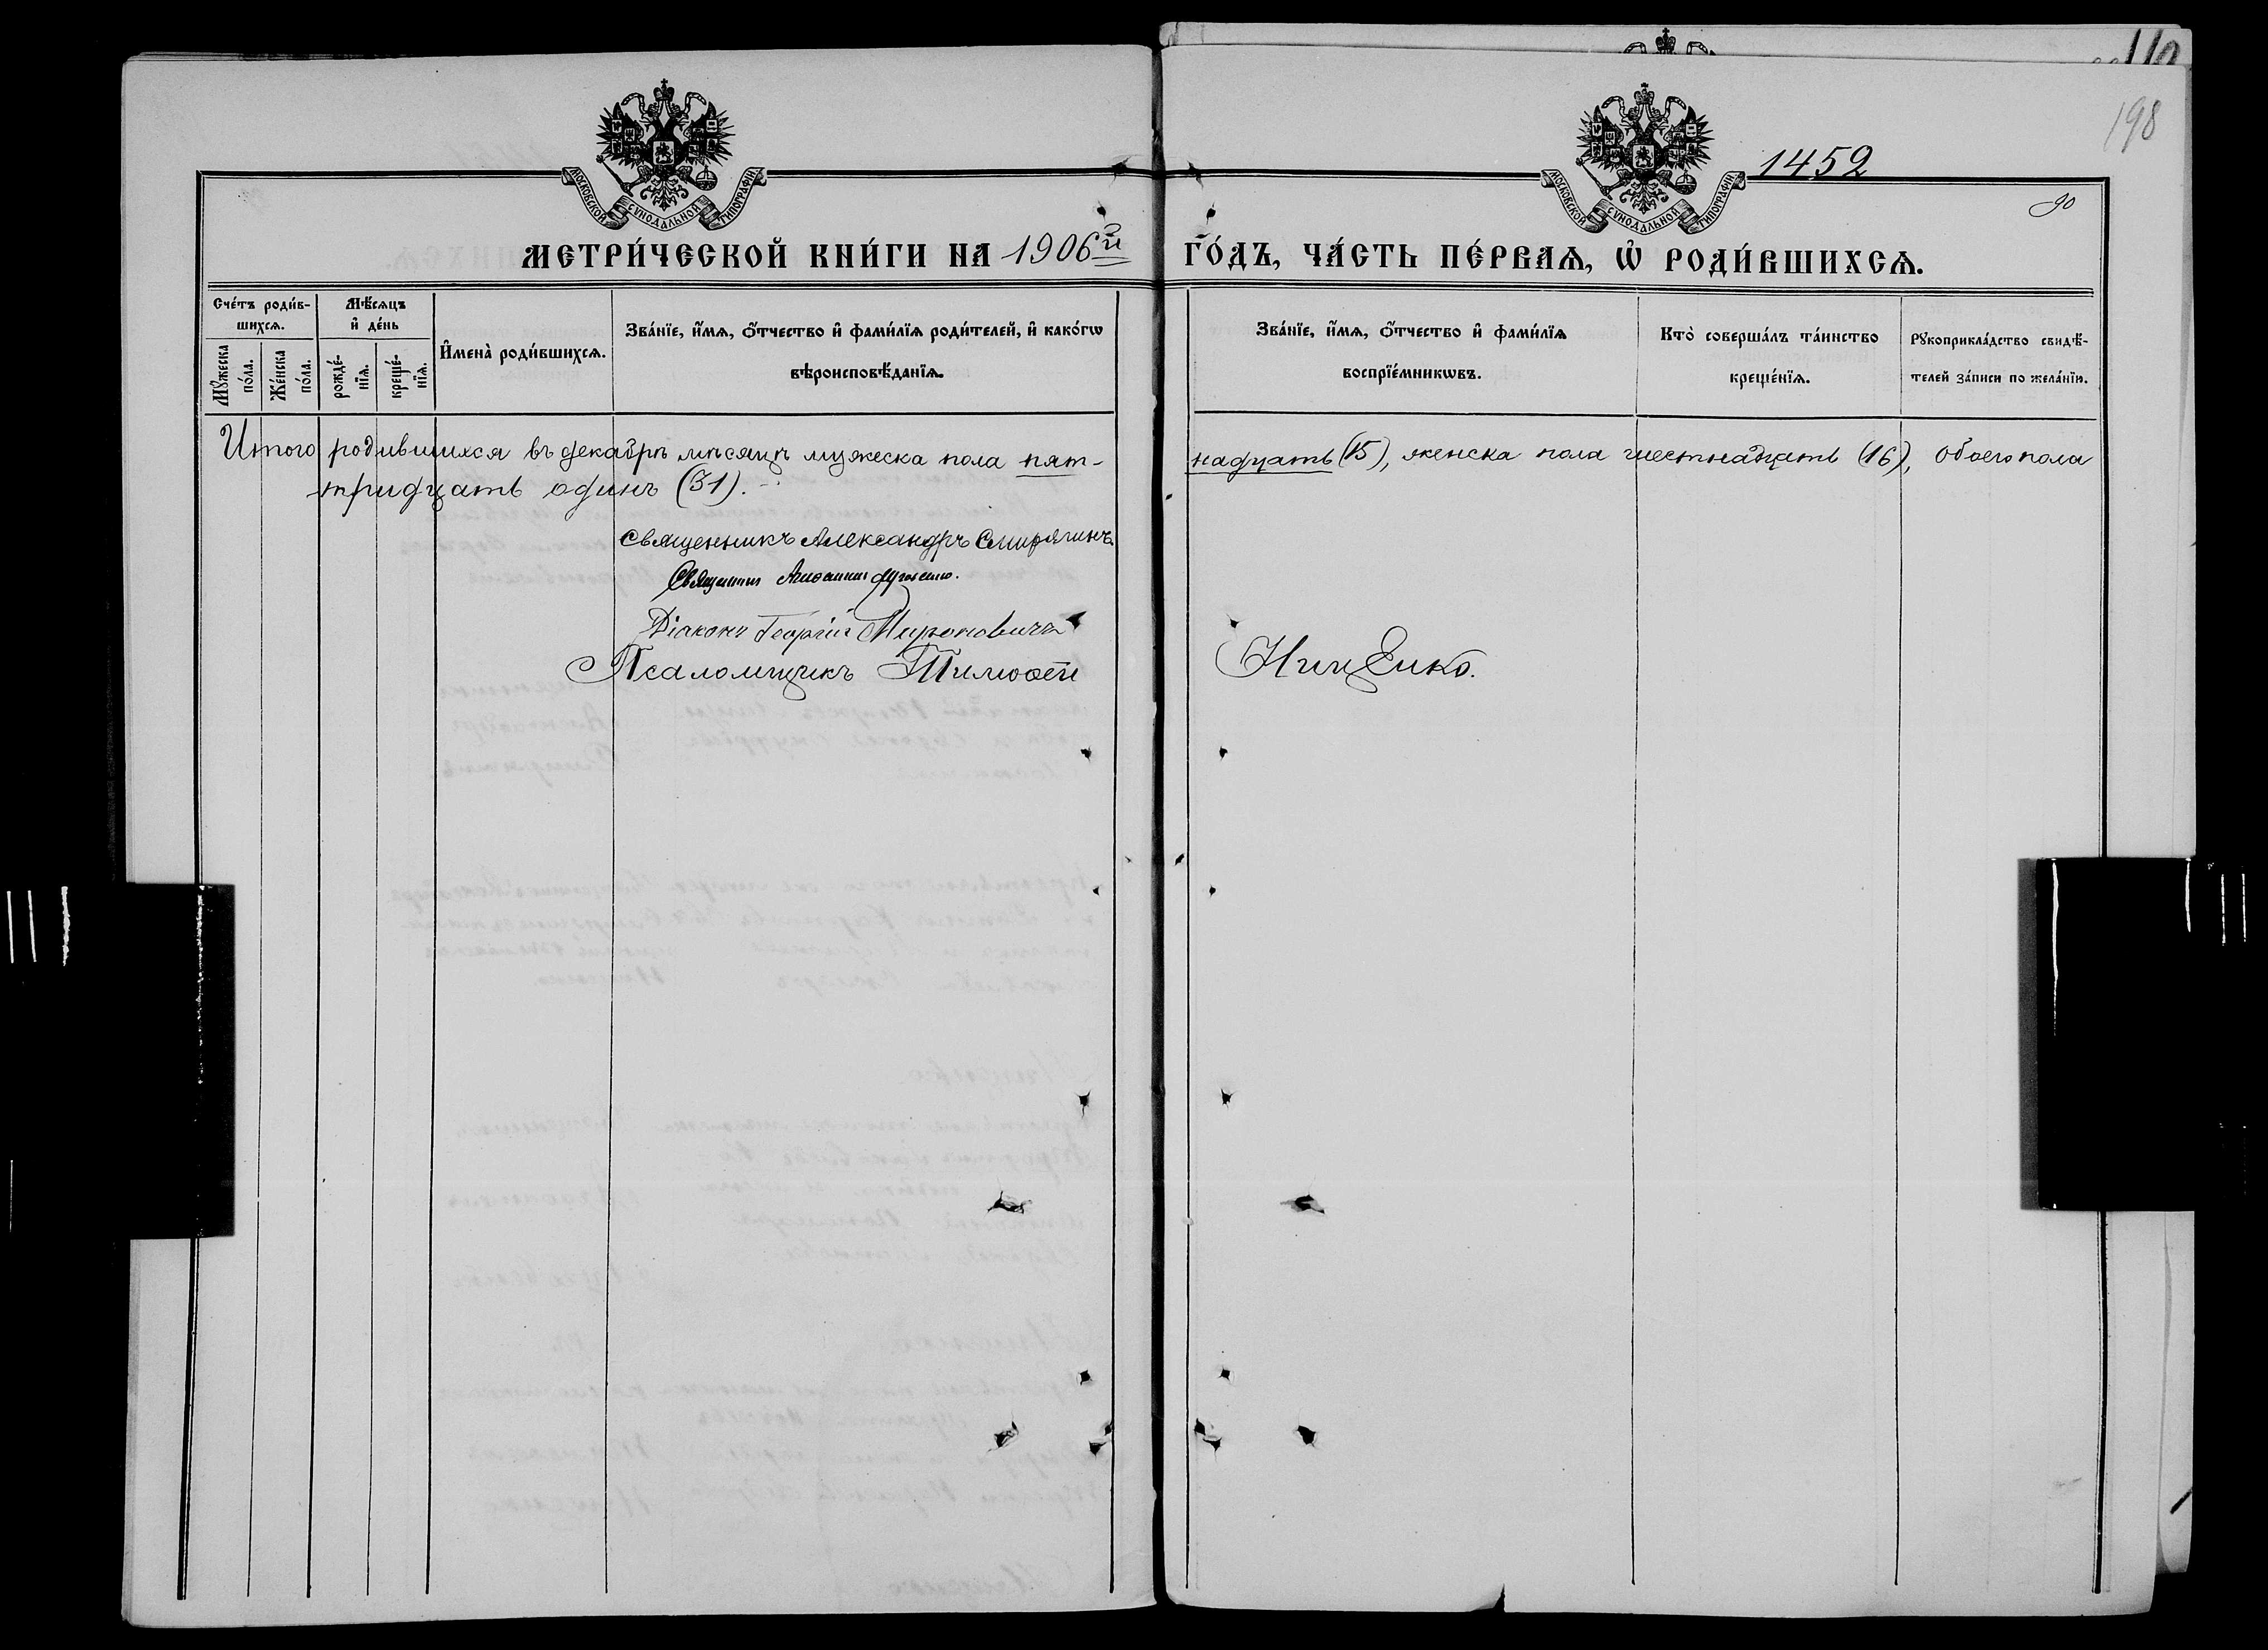 110
198
1452
90
МОСКОВСКОЙ СУНОДАЛЬНОЙ ТИПОГРАФІИ
МОСКОВСКОЙ СУНОДАЛЬНОЙ ТИПОГРАФІИ
МЕТРИ́ЧЕСКОЙ КНИ́ГИ НА 1906й ГО́ДЪ, ЧА́СТЬ ПЕ́РВАѦ, Ѡ РОДИ́ВШИХСѦ.
Сче́тъ роди́в-
шихсѧ.
Мꙋ́жеска
по́ла.
Же́нска
по́ла.
Мѣ́сѧцъ
и҆ де́нь
рожде́-
нїѧ.
креще́-
нїѧ.
И҆мена̀ роди́вшихсѧ.
Зва́нїе, и҆́мѧ, ѻ҆́тчество и҆ фами́лїѧ роди́телей, и҆ како́гѡ
вѣроисповѣ́данїѧ.
Зва́нїе, и҆́мѧ, ѻ҆́тчество и҆ фами́лїѧ
воспрїе́мникѡвъ.
Кто̀ соверша́лъ та́инство
креще́нїѧ.
Рꙋкоприкла́дство свидѣ́-
телей за́писи по жела́нїи.
Итого родившихся въ декабрѣ мѣсяцѣ мужеска пола пят-
надцать (15), женска пола шестнадцать (16), обоего пола
тридцать одинъ (31).
Священникъ Александръ Смирягинъ.
Священникъ
Діаконъ Георгій Мироновичъ
Псаломщикъ Тимоѳей Нищенко.